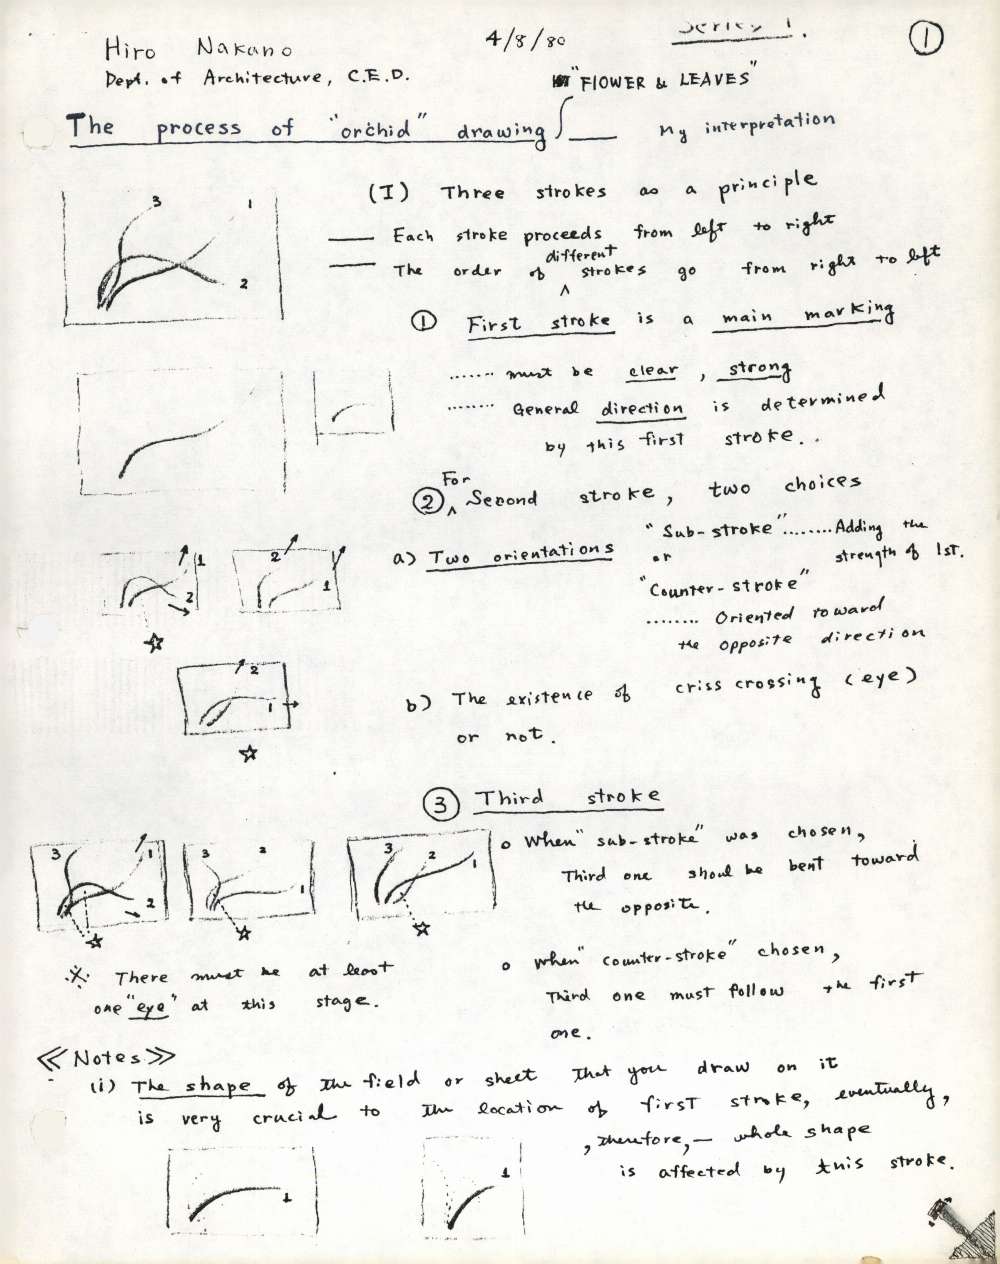 Series 1.
①
Hiro Nakano
4/8/80
Dept. of Architecture, C.E.D.
"FLOWER & LEAVES"
The process of "orchid" drawing ___ My interpretation
(I) Three strokes as a principle
— Each stroke proceeds from left to right
— The order of different strokes go from right to left
3 1
2
① First stroke is a main marking
........ must be clear, strong
........ General direction is determined
by this first stroke...
② For Second stroke, two choices
a) Two orientations
"Sub-stroke"........Adding the
or strength of 1st.
"Counter-stroke"
........ Oriented toward
the opposite direction
1
2
2
1
☆
b) The existence of criss crossing (eye)
or not.
2
1
☆
③ Third stroke
o When "sub-stroke" was chosen,
Third one shoul be bent toward
the opposite.
o When "counter-stroke" chosen,
Third one must follow the first
one.
3 1
2
☆
3 2
1
☆
3 2 1
☆
※ There must be at least
one "eye" at this stage.
≪Notes≫
(i) The shape of the field or sheet that you draw on it
is very crucial to the location of first stroke, eventually,
, therefore, — whole shape
is affected by this stroke.
1
1